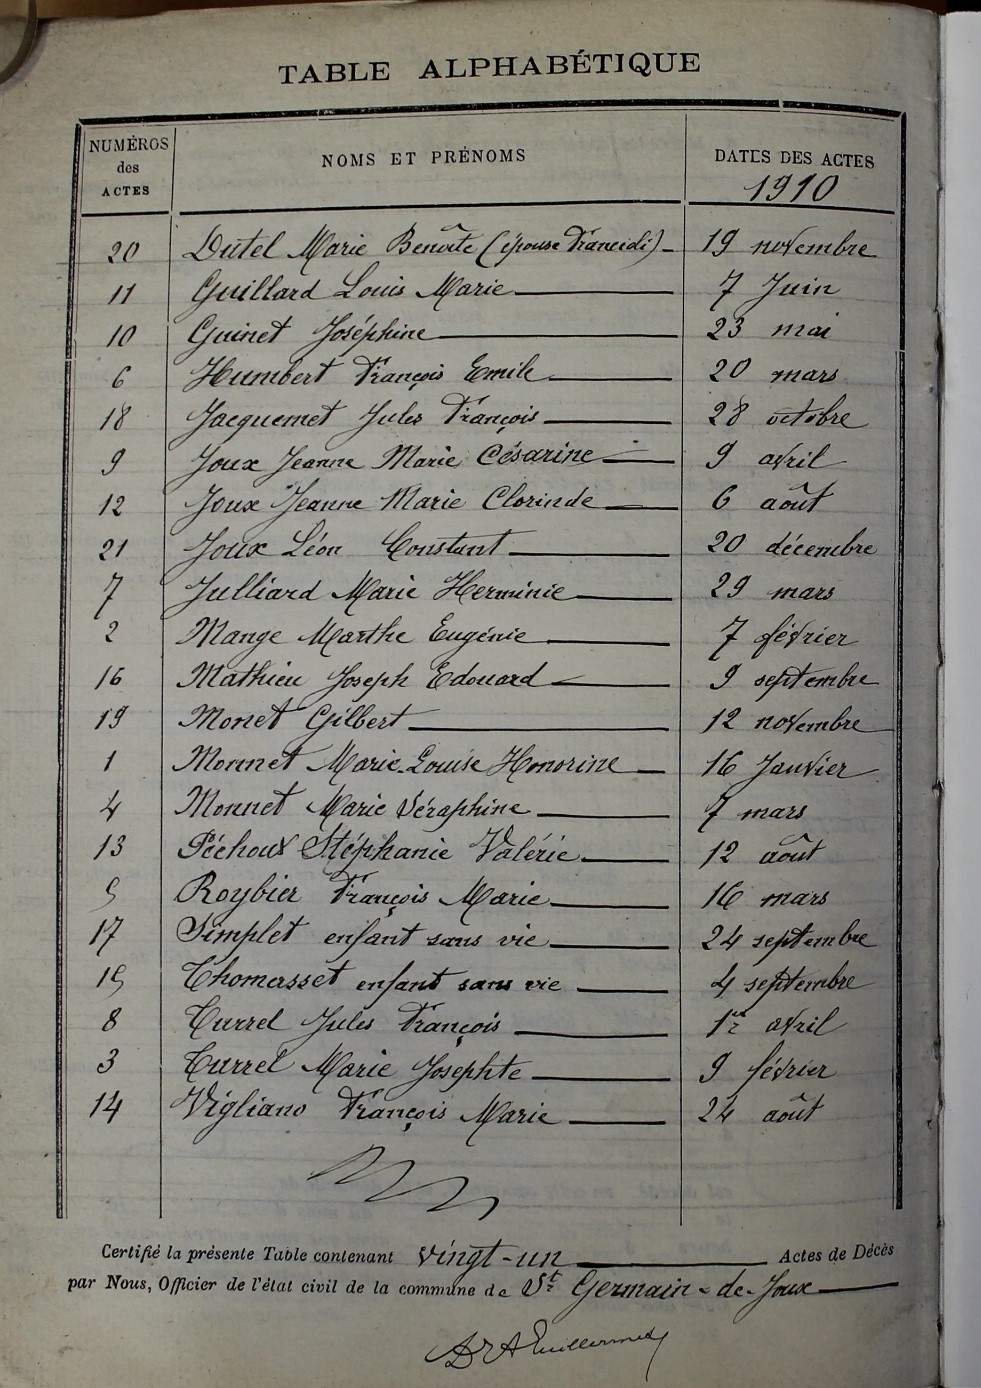 TABLE ALPHABÉTIQUE
NUMÉROS des ACTES NOMS ET PRÉNOMS DATES DES ACTES
1910
20 Dutel Marie Benoîte (épouse Francidi) 19 novembre
11 Guillard Louis Marie 7 Juin
10 Guinet Joséphine 23 mai
6 Humbert François Emile 20 mars
18 Jacquemet Jules François 28 octobre
9 Joux Jeanne Marie Césarine 9 avril
12 Joux Jeanne Marie Clorinde 6 août
21 Joux Léon Constant 20 décembre
7 Julliard Marie Herminie 29 mars
2 Mange Marthe Eugénie 7 février
16 Mathieu Joseph Edouard 9 septembre
19 Monet Gilbert 12 novembre
1 Monnet Marie-Louise Honorine 16 Janvier
4 Monnet Marie Séraphine 7 mars
13 Péchoux Stéphanie Valérie 12 août
5 Roybier François Marie 16 mars
17 Simplet enfant sans vie 24 septembre
15 Thomasset enfant sans vie 4 septembre
8 Turrel Jules François 1er avril
3 Turrel Marie Josephte 9 février
14 Vigliano François Marie 24 août
Certifié la présente Table contenant vingt-un Actes de Décès
par Nous, Officier de l'état civil de la commune de St Germain-de-Joux